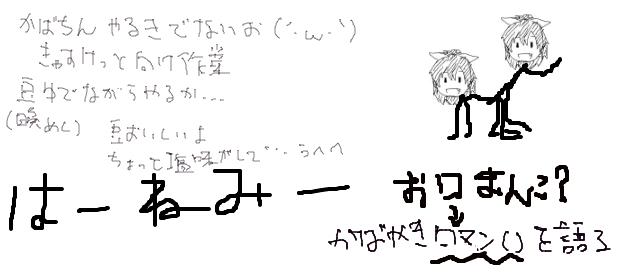 かばちん やるきでないお(´・ω・`)
きゃすけっと向け作業
豆ゆでながらやるか…
(喚めく) 豆おいしいよ
ちょっと塩味がして‥うへへ
はーねみー
お口まんこ?
↓
かばがきロマン()を語る